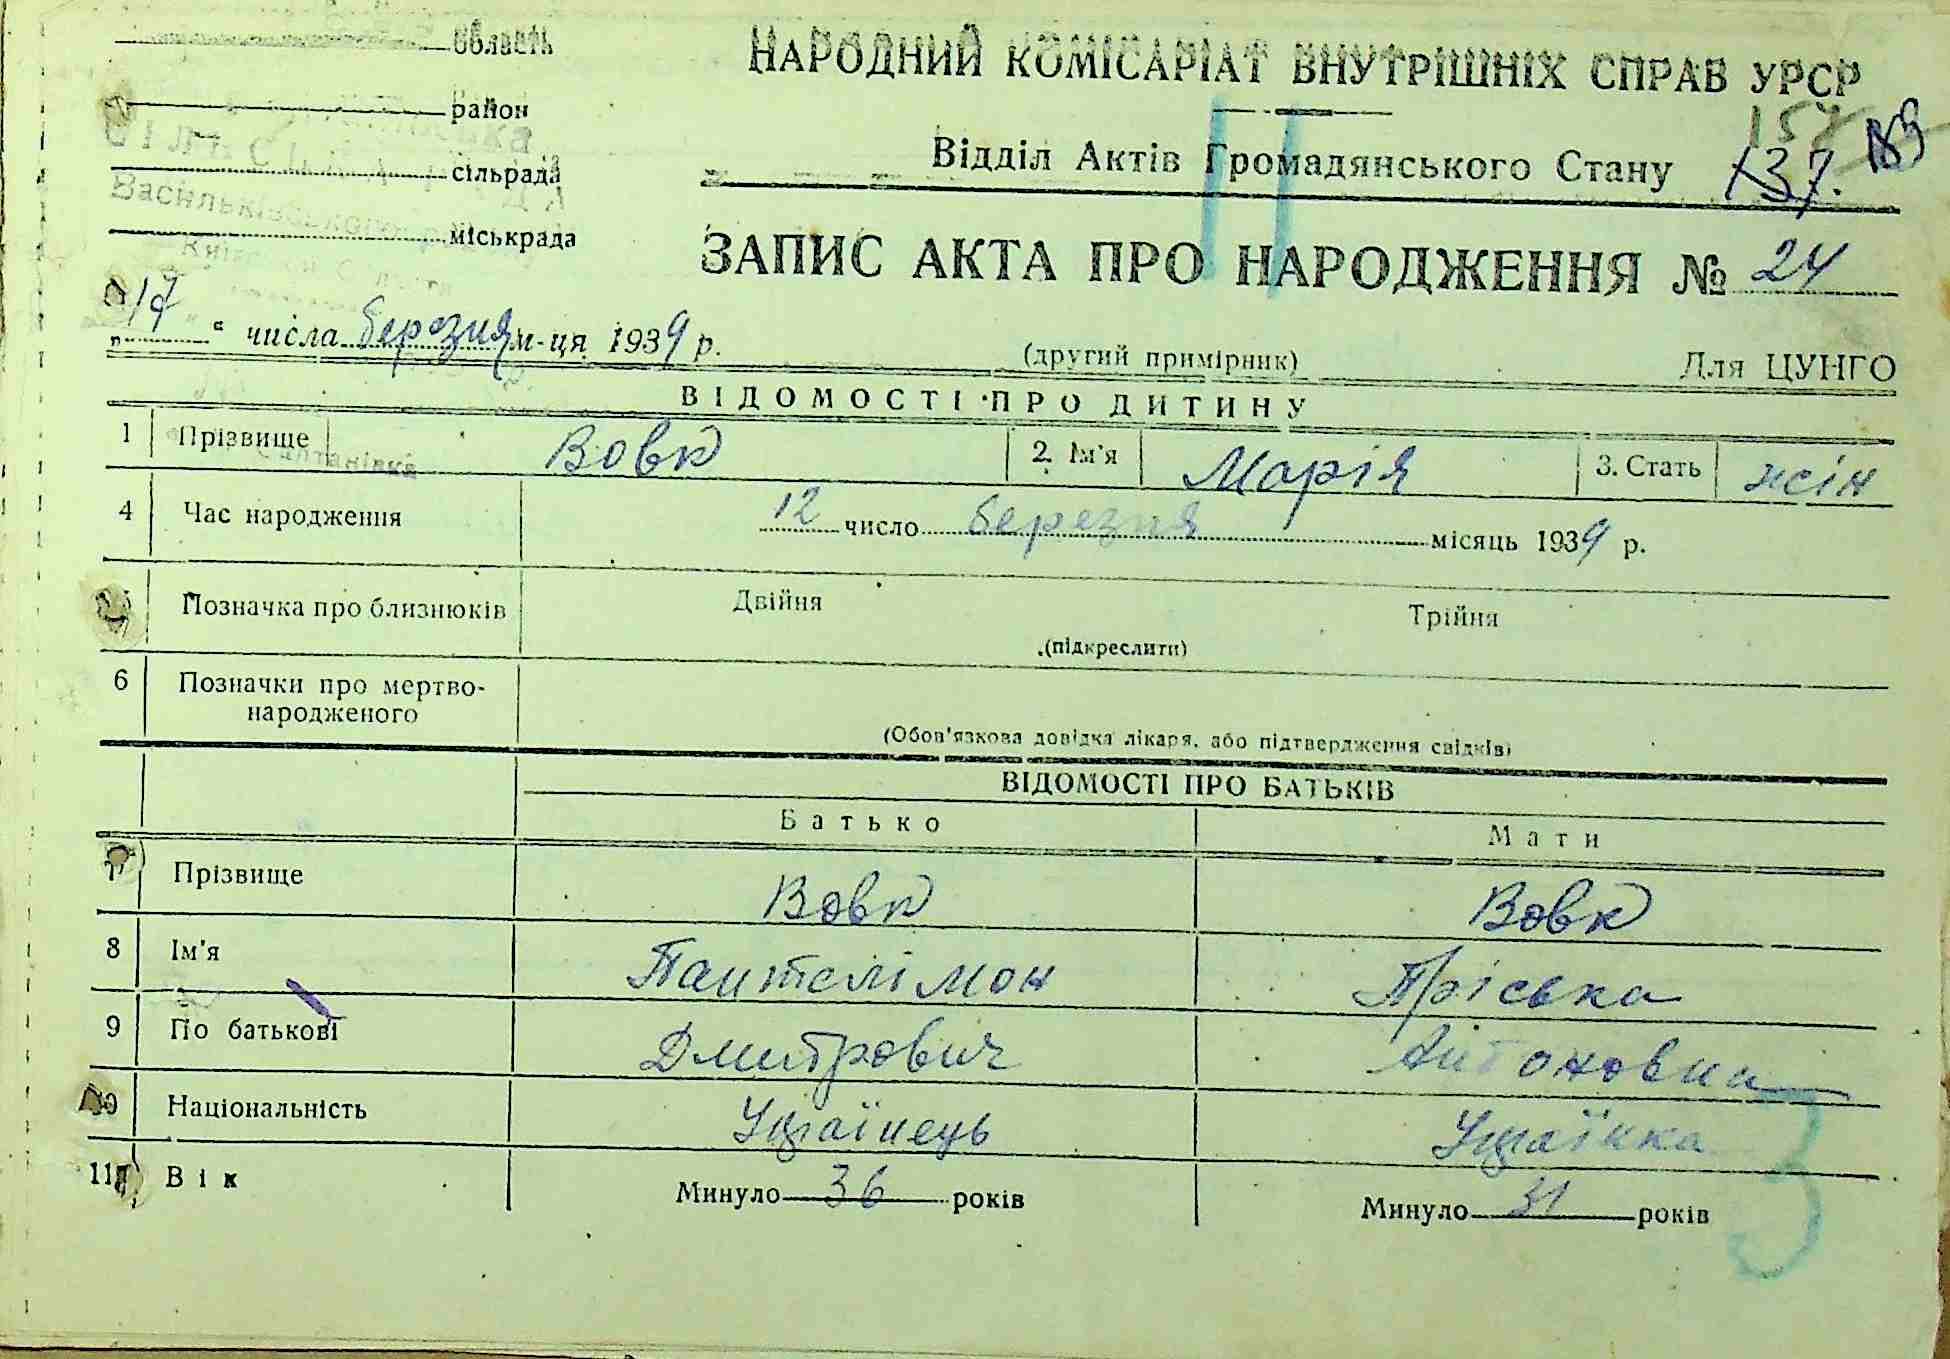 область
НАРОДНИЙ КОМІСАРІАТ ВНУТРІШНІХ СПРАВ УРСР
район
157 183
СІЛЬСЬКА РАДА
Відділ Актів Громадянського Стану 137.
сільрада
Васильківського
міськрада
ЗАПИС АКТА ПРО НАРОДЖЕННЯ № 24
„17“ числа березня м-ця 1939 р.
(другий примірник) Для ЦУНГО
ВІДОМОСТІ ПРО ДИТИНУ
1 Прізвище Вовк 2. Ім'я Марія 3. Стать жін
4 Час народження 12 число березня місяць 1939 р.
Позначка про близнюків Двійня Трійня
(підкреслити)
6 Позначки про мертво-
народженого
(Обов'язкова довідка лікаря, або підтвердження свідків)
ВІДОМОСТІ ПРО БАТЬКІВ
Батько Мати
7 Прізвище Вовк Вовк
8 Ім'я Пантелімон Пріська
9 По батькові Дмитрович Антоновна
10 Національність Українець Українка
11 Вік Минуло 36 років Минуло 31 років